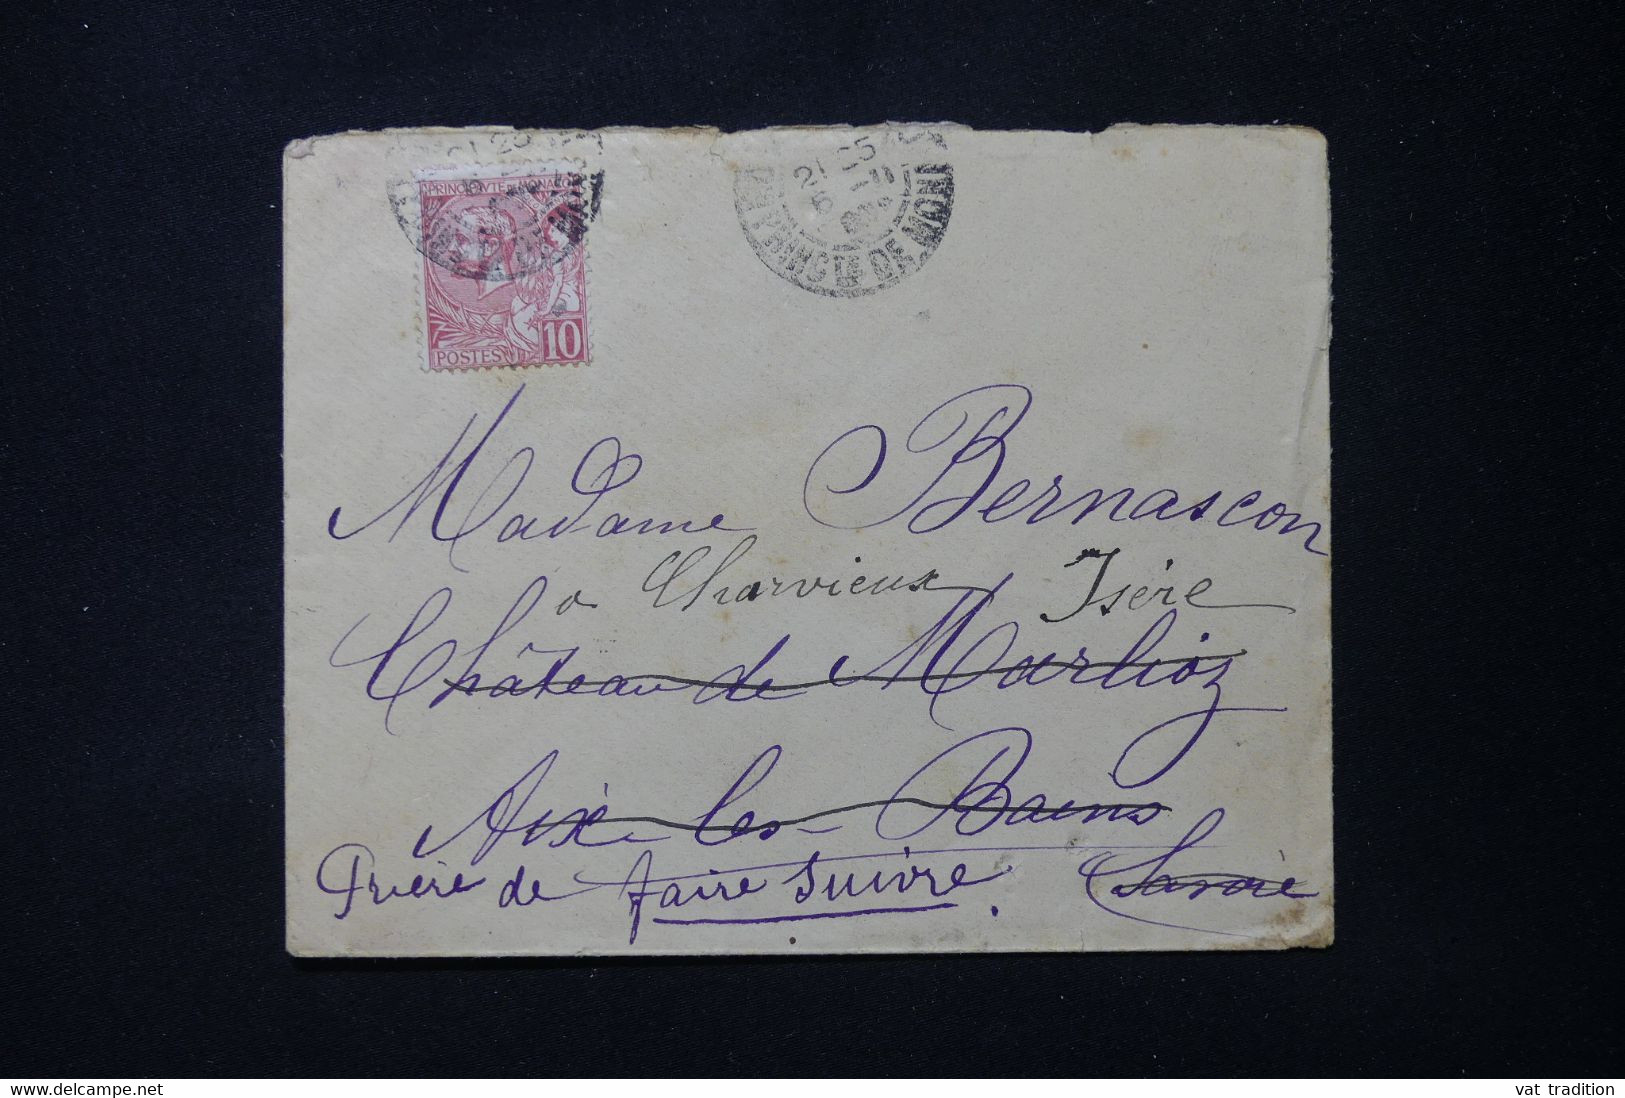 PRINCIPAUTÉ DE MONACO
POSTES 10
21 25
PRINCTÉ DE MON
Madame Bernascon
a Charvieux Isère
Château de Marlioz
Aix-les-Bains
Savoie
Prière de faire suivre.
delcampe.net
vat tradition